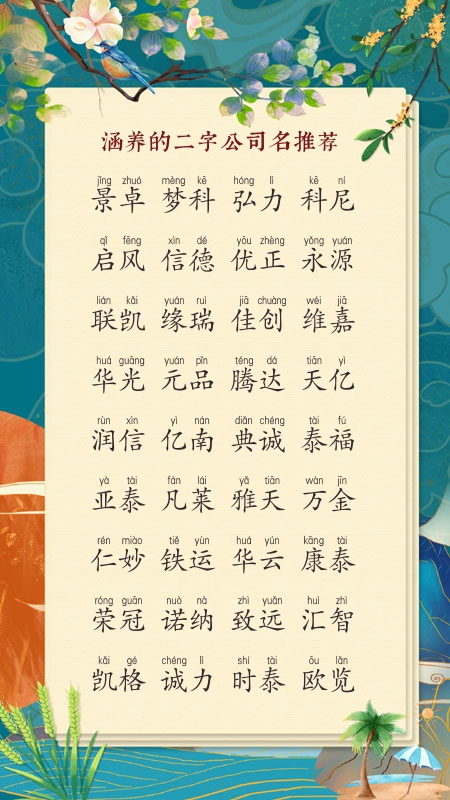 涵养的二字公司名推荐
jǐng zhuó mèng kē hóng lì kē ní
景卓 梦科 弘力 科尼
qǐ fēng xìn dé yōu zhèng yǒng yuán
启风 信德 优正 永源
lián kǎi yuán ruì jiā chuàng wéi jiā
联凯 缘瑞 佳创 维嘉
huá guāng yuán pǐn téng dá tiān yì
华光 元品 腾达 天亿
rùn xìn yì nán diǎn chéng tài fú
润信 亿南 典诚 泰福
yà tài fán lái yǎ tiān wàn jīn
亚泰 凡莱 雅天 万金
rén miào tiě yùn huá yún kāng tài
仁妙 铁运 华云 康泰
róng guān nuò nà zhì yuǎn huì zhì
荣冠 诺纳 致远 汇智
kǎi gé chéng lì shí tài ōu lǎn
凯格 诚力 时泰 欧览